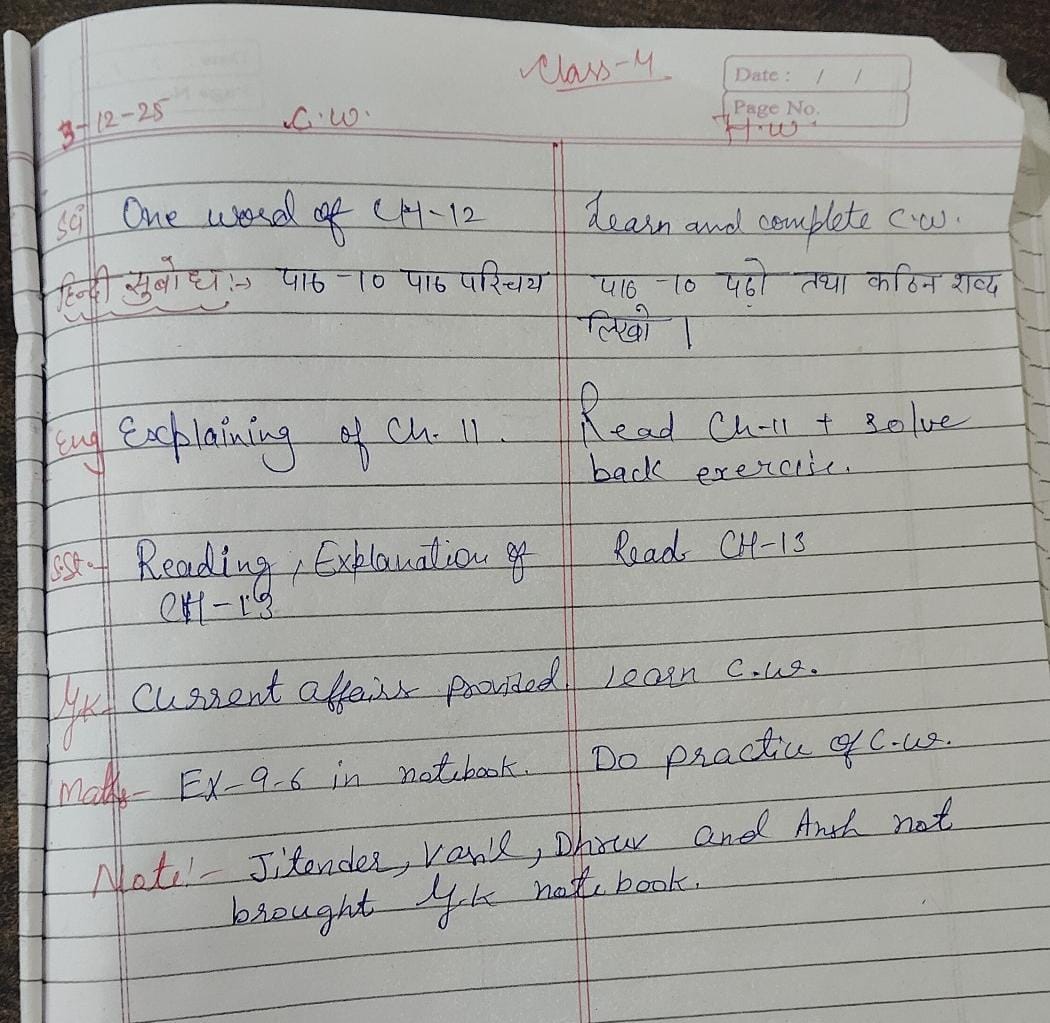 Class-4
Date : / /
Page No.
3-12-25 C.W. H.W
Sci One word of CH-12 Learn and complete C.W.
हिन्दी सुबोध :-> पाठ -10 पाठ परिचय पाठ -10 पढ़ो तथा कठिन शब्द
लिखो ।
Eng Explaining of Ch. 11. Read Ch-11 + solve
back exercise.
S.St.- Reading, Explanation of Read CH-13
CH-13
G.K- Current affairs provided. Learn C.W.
Maths- EX-9.6 in notebook. Do practice of C.W.
Note:- Jitender, Dhruv and Ansh not
brought G.K notebook.